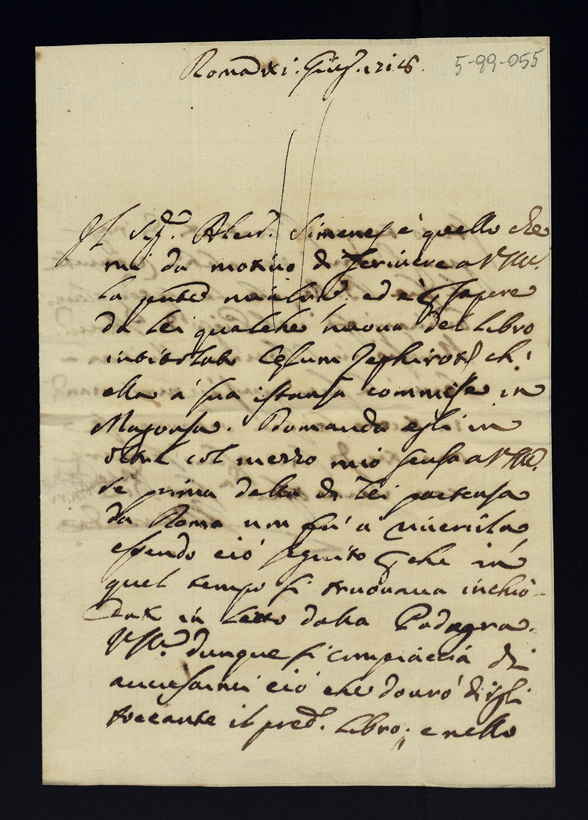 Roma xi. Giug. 1718.
5-99-055
Il Sig.r Aless. Simenes è quello che
mi dà motivo di scrivere a V.S. Ill.
la pnte mia, ed è p sapere
da lei qualche nuova del libro
intitolato ch'
ella à sua istanza commise in
Magonza. Domanda egli in
oltre col mezzo mio scusa a V.S. Ill.
se prima della di Lei partenza
da Roma non fù a riverirla
essendo ciò seguito p che in
quel tempo si trovava inchio-
dato in letto dalla Podagra.
V.S. Ill. dunque si compiaccia di
avvisarmi ciò che dovrò dirgli
toccante il pred.o libro; e nello